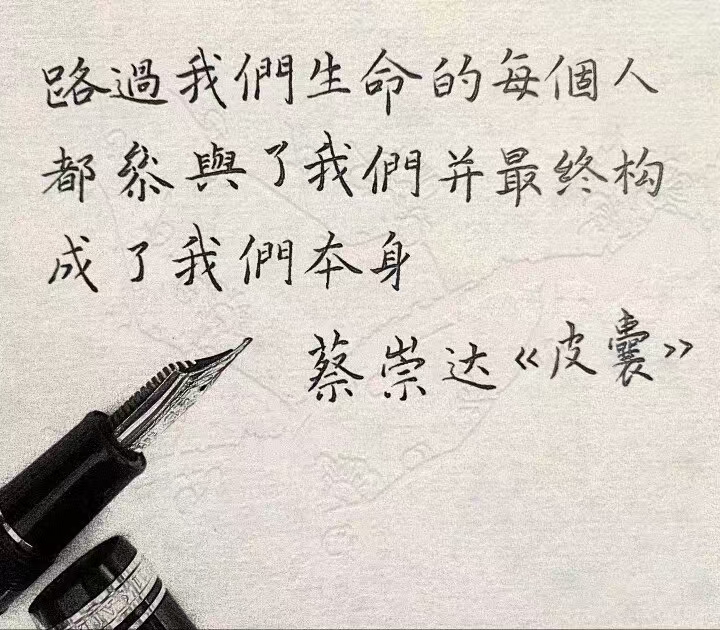 路過我們生命的每個人
都叅與了我們并最终构
成了我們本身
蔡崇达《皮囊》